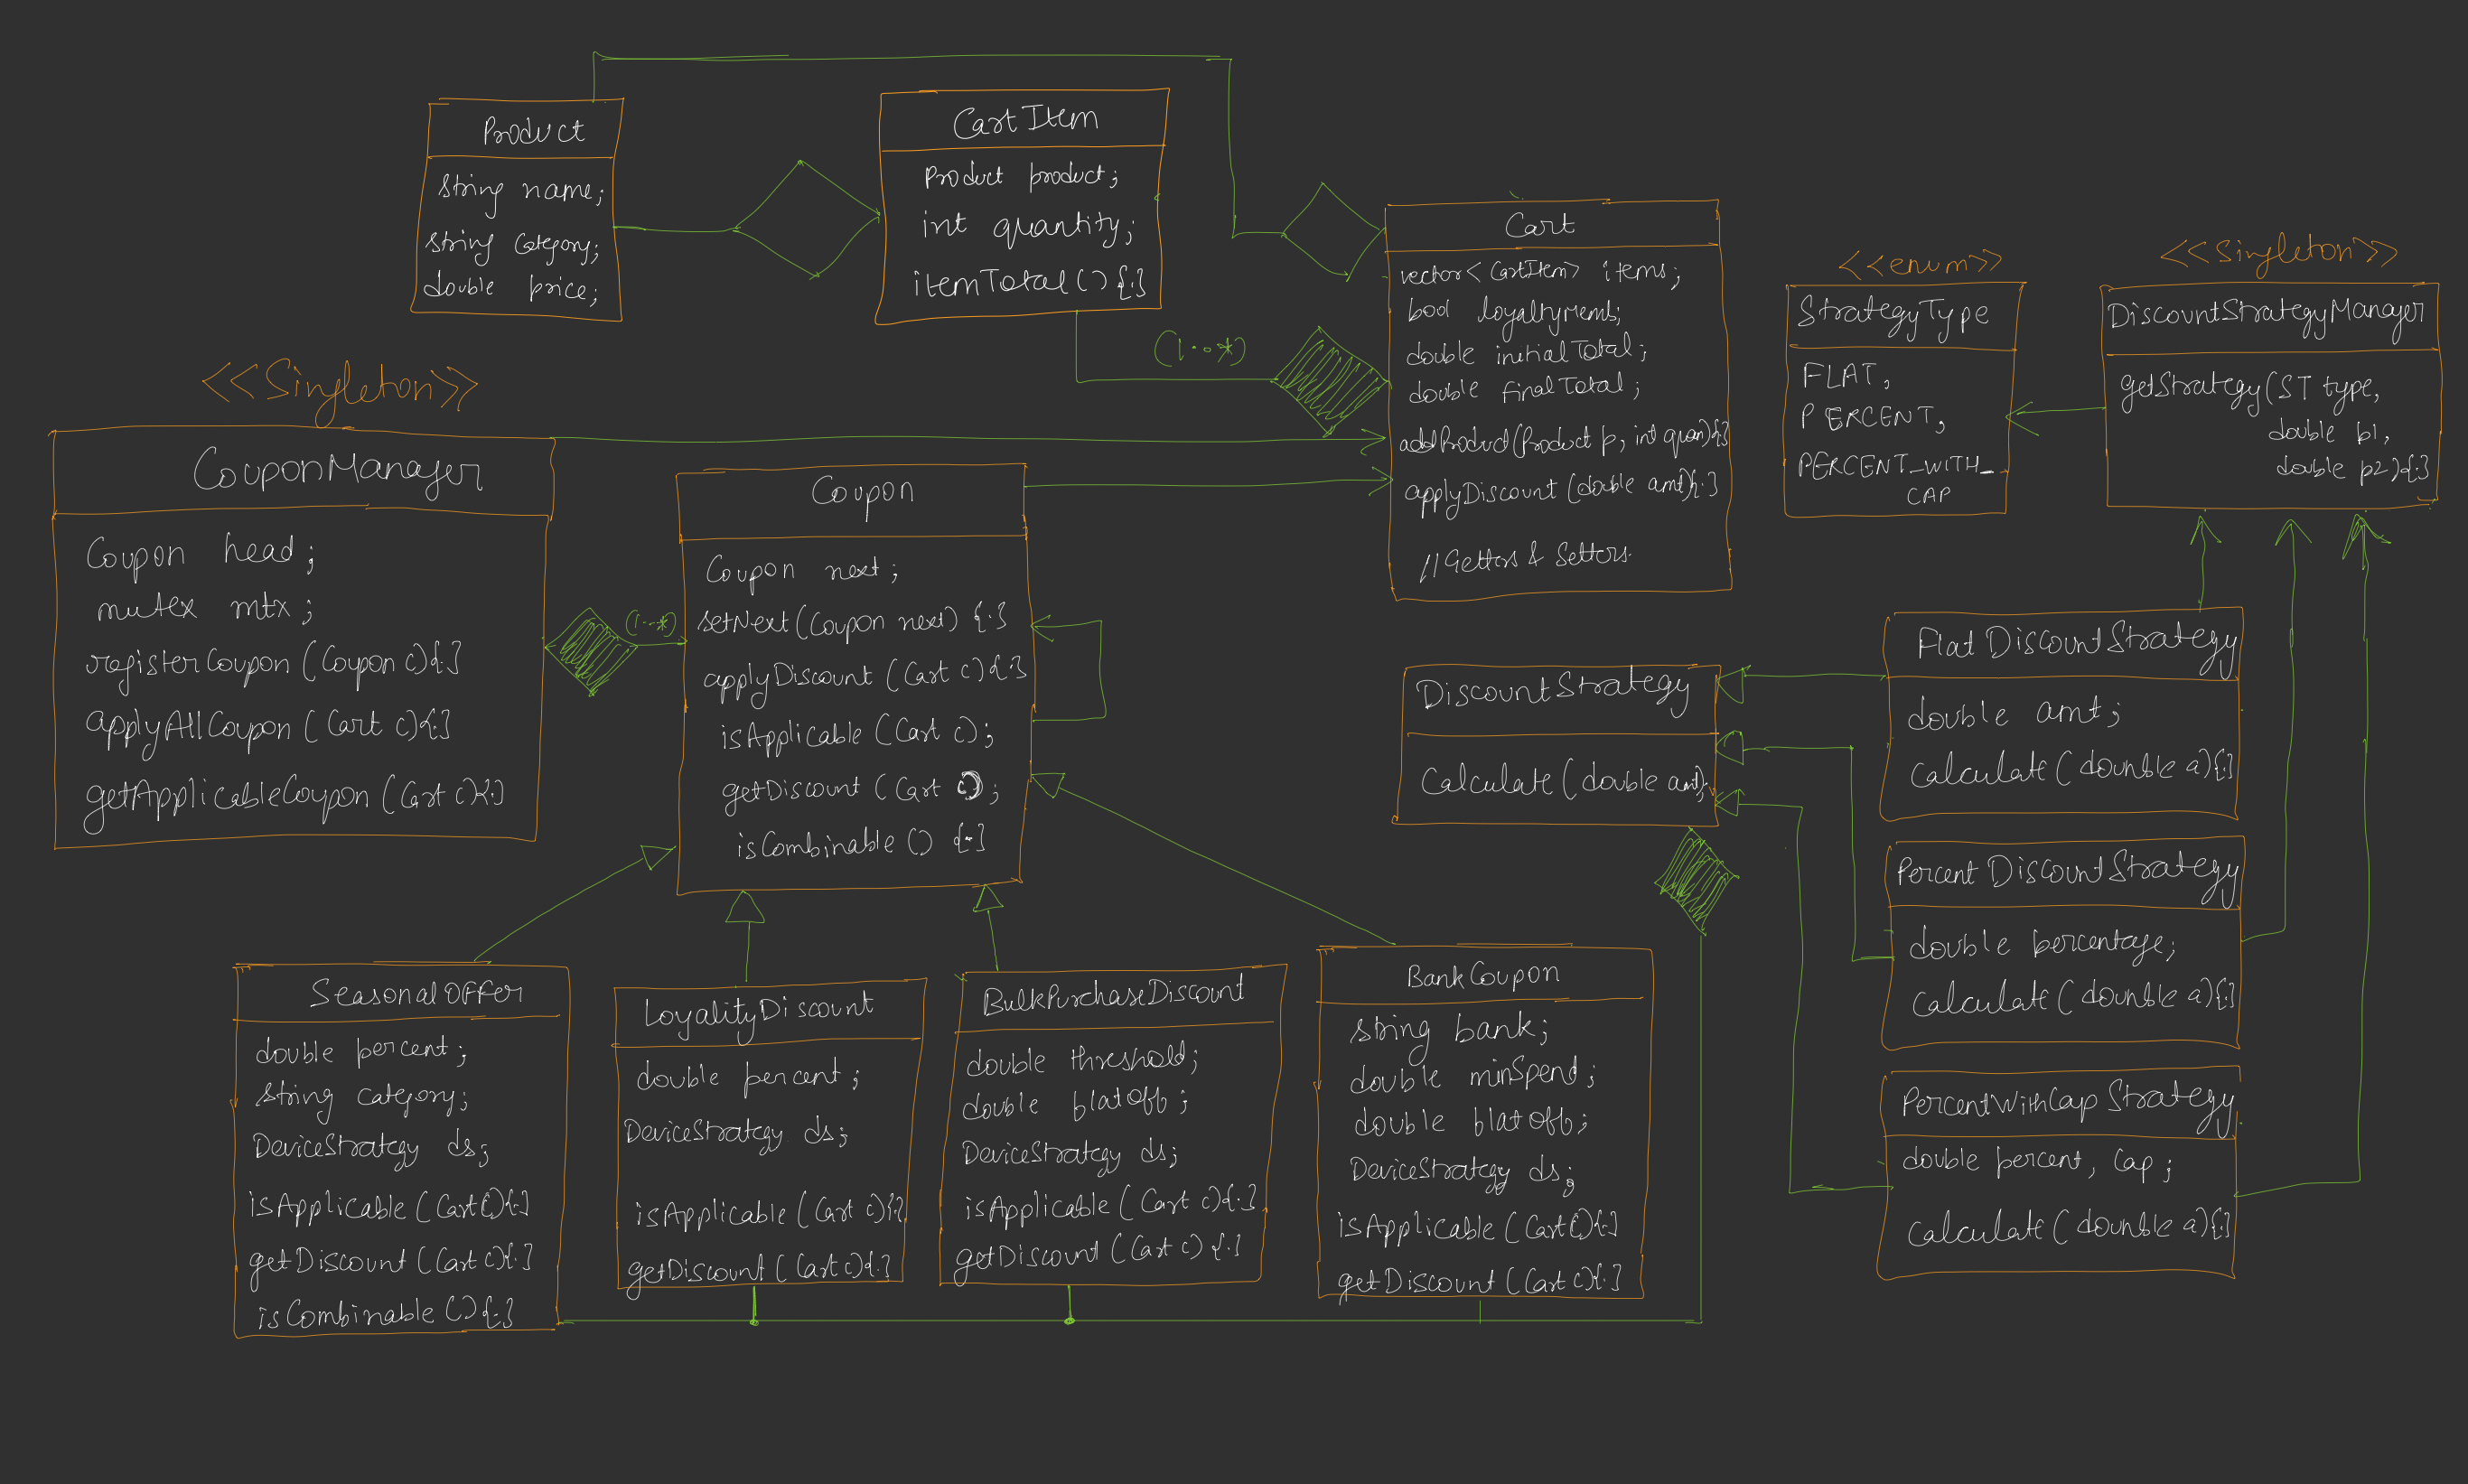 Product
string name;
string category;
double price;
CartItem
Product product;
int quantity;
itemTotal () {.}
Cart
vector<CartItem> items;
bool loyaltyMemb;
double initialTotal;
double finalTotal;
addProduct(Product p, int quan){.}
applyDiscount (double amt){.}
// Getters & Setters.
(1..*)
<<enum>>
StrategyType
FLAT,
PERCENT,
PERCENT_WITH_
CAP
<<Singleton>>
DiscountStrategyManager
getStrategy(ST type,
double p1,
double p2){.}
<<Singleton>>
CouponManager
Coupon head;
mutex mtx;
registerCoupon (Coupon c){.}
applyAllCoupon (Cart c){.}
getApplicableCoupon (Cart c){.}
(1..*)
Coupon
Coupon next;
setNext (Coupon next) {.}
applyDiscount (Cart c){.}
isApplicable (Cart c);
getDiscount (Cart c);
isCombinable () {.}
DiscountStrategy
Calculate (double amt);
Flat DiscountStrategy
double amt;
Calculate (dounble a){.}
Percent DiscountStrategy
double percentage;
Calculate (dounble a){.}
PercentWithCap Strategy
double percent, Cap;
Calculate (dounble a){.}
SeasonalOffer
double percent;
string category;
DeviceStrategy ds;
isApplicable (Cart c){.}
getDiscount (Cart c){.}
isCombinable (){.}
LoyalityDiscount
double percent;
DeviceStrategy ds;
isApplicable (Cart c){.}
getDiscount (Cart c){.}
BulkPurchaseDiscount
double threshold;
double flatoff;
DeviceStrategy ds;
isApplicable (Cart c){.}
getDiscount (Cart c) {.}
BankCoupon
string bank;
double minSpend;
double flatoff;
DeviceStrategy ds;
isApplicable (Cart c){.}
getDiscount (Cart c){.}